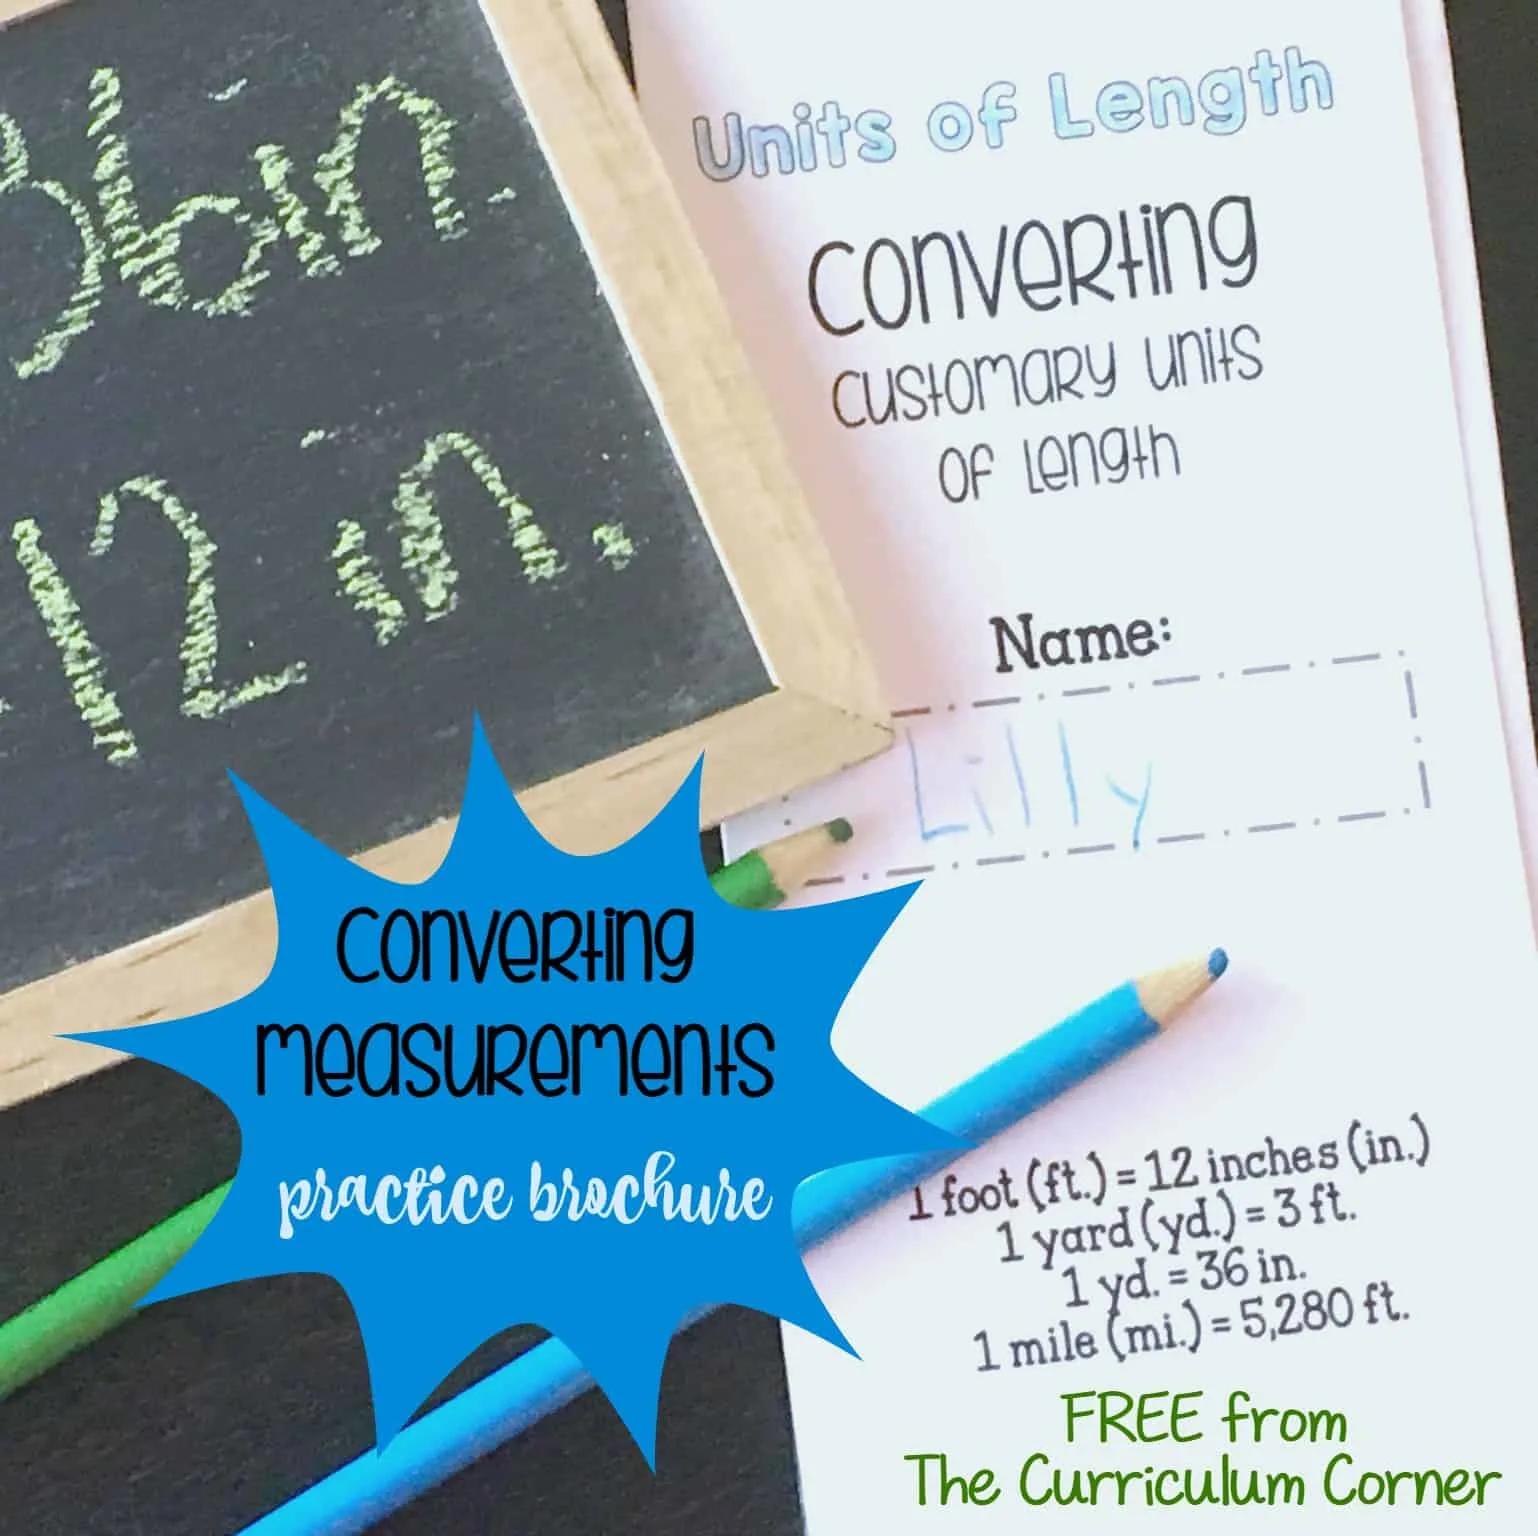 36 in.
12 in.
Units of Length
Converting
customary units
of length
Name:
Lilly
Converting
measurements
practice brochure
1 foot (ft.) = 12 inches (in.)
1 yard (yd.) = 3 ft.
1 yd. = 36 in.
1 mile (mi.) = 5,280 ft.
FREE from
The Curriculum Corner